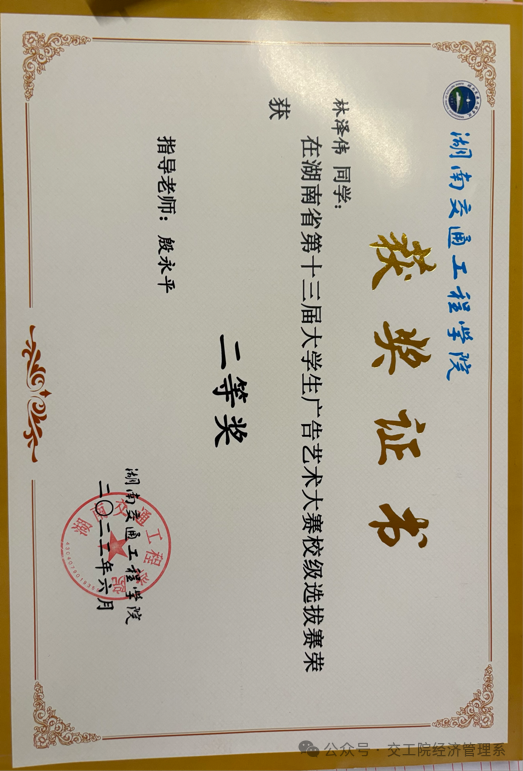 湖南交通工程学院
获奖证书
林泽伟 同学：
在湖南省第十三届大学生广告艺术大赛校级选拔赛荣
获
二等奖
指导老师：殷永平
湖南交通工程学院
二〇二三年六月
湖南交通工程学院
公众号·交工院经济管理系